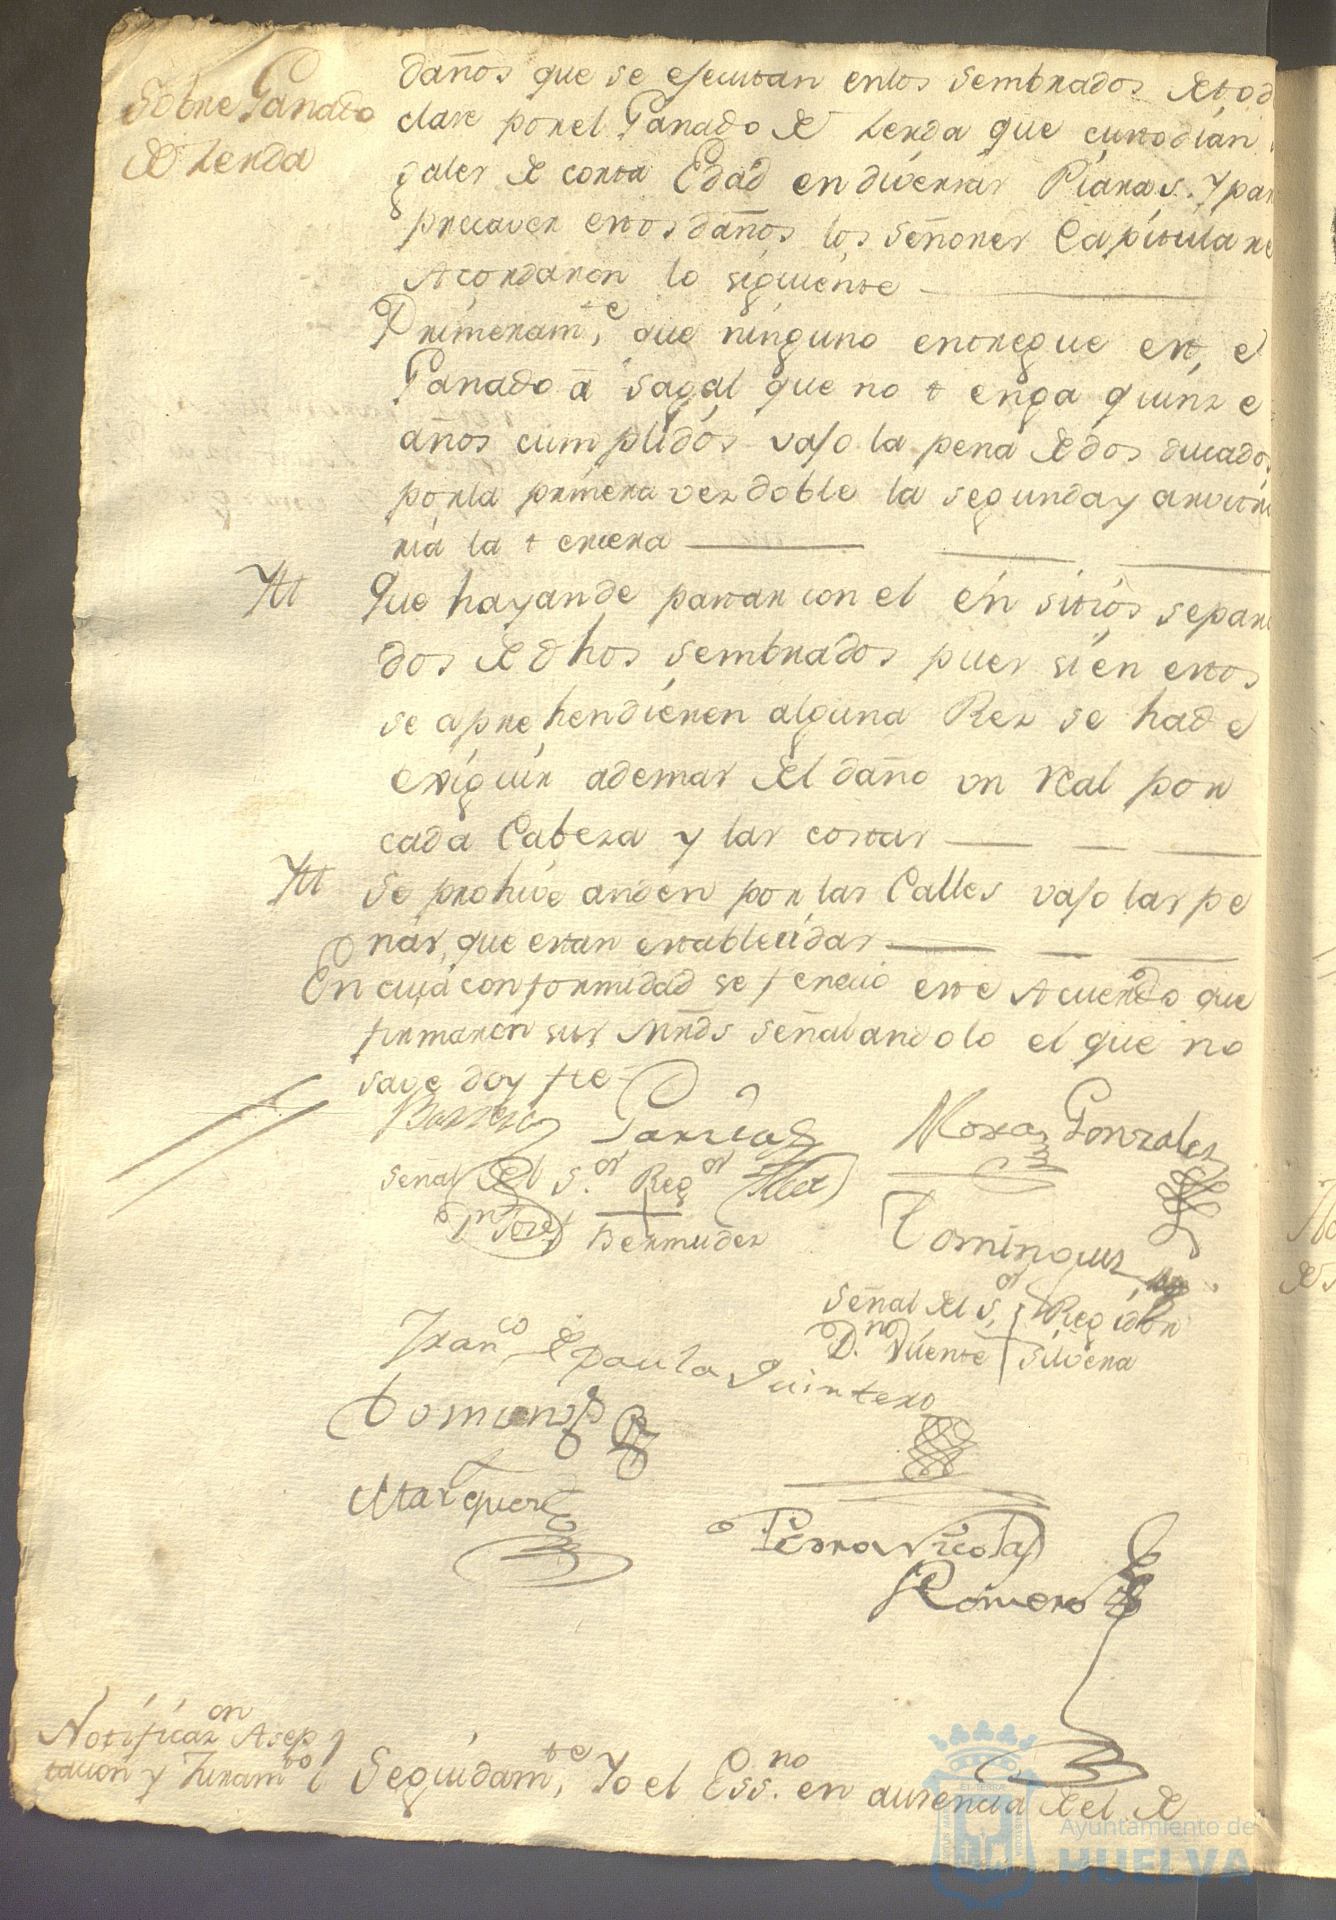 Sobre Ganado
de Zerda
daños que se ejecutan enlos sembrados de tod
clase por el Ganado de Zerda que custodian
gales de corta Edad en diversas Piaras. Y par
precaver estos daños los señores Capitulare
Acordaron lo siguiente
Primeram.te que ninguno entregue est.e
Ganado â sagal que no tenga quinze
años cumplidos vajo la pena de dos ducados
por la primera vez doble la segunda y arvitra
ria la tercera
Ytt Que hayande pastar con el en sitios separa
dos de dhos sembrados pues sien estos
se aprehendieren alguna Rez se hade
exiguir ademas del daño un real por
cada Cabeza y las costas
Ytt Se prohive anden por las Calles vajo las pe
nas, que estan establecidas
En cuia conformidad se fenecio este Acuerdo que
firmaron sus Mrds señalandolo el que no
save doy fee
Borrero Garcia Mora Gonzalez
señal del S.or Reg.or
D.n Josef Bermudez
Dominguez
señal del S.or Regidor
D.no Vicente Silvera
Fran.co de paula Quintero
Marquez
Pedro Nicolas
Romero
Notificaz.on Asep
tacion y Juram.to
Seguidam.te Yo el Ess.no en ausencia del de
Ayuntamiento de
HUELVA